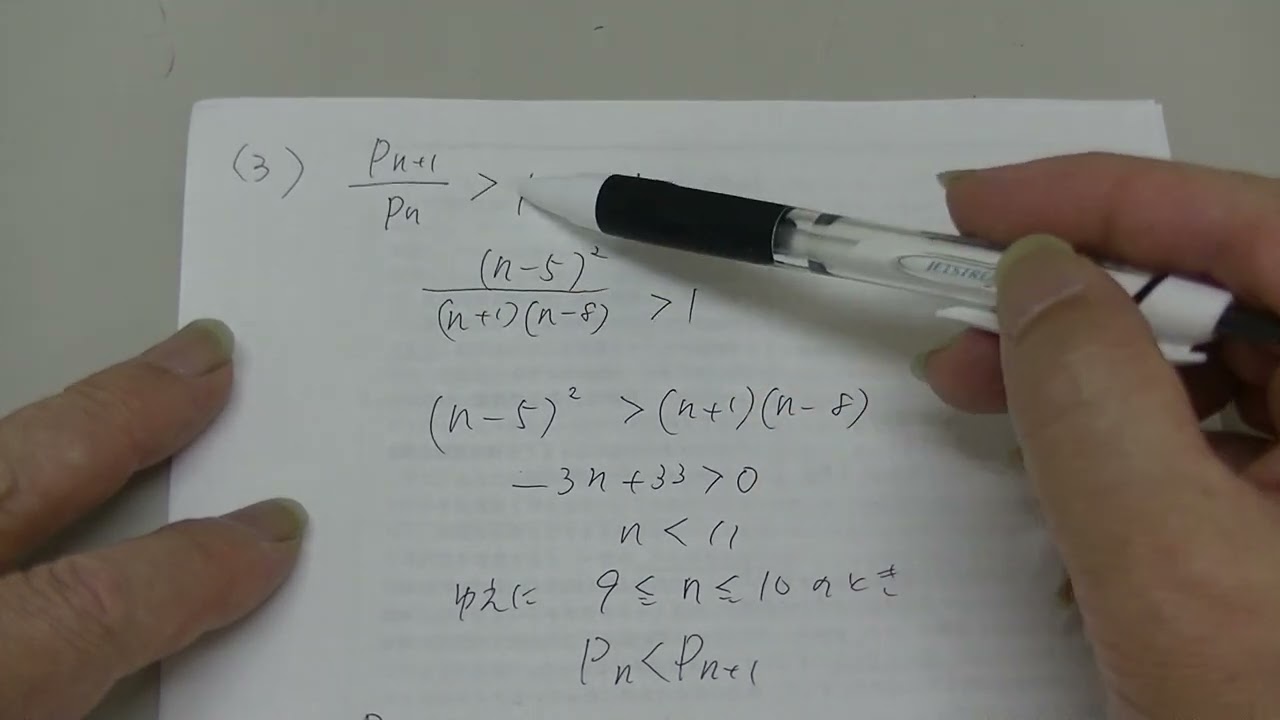 (3) Pn+1/Pn > 1
(n-5)²/(n+1)(n-8) > 1
(n-5)² > (n+1)(n-8)
-3n+33>0
n < 11
ゆえに 9≦n≦10のとき
Pn<Pn+1